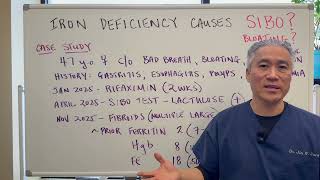 IRON DEFICIENCY CAUSES SIBO?
BLOATING?
CASE STUDY
47 y.o ♀ c/o BAD BREATH, BLOATING,
HISTORY: GASTRITIS, ESOPHAGITIS, POLYPS,
JAN 2025 - RIFAXIMIN (2 WKS)
APRIL 2025 - SIBO TEST - LACTULOSE (+)
NOV 2025 - FIBROIDS (MULTIPLE LARGE
~ PRIOR FERRITIN 2 (7-
Hgb 8
Fe 18